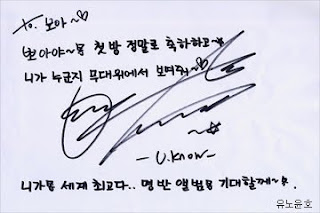 To. 보아
보아야~ 첫방 정말로 축하하고~
니가 누군지 무대위에서 보여줘~♡
-U.Know-
니가 세계 최고다.. 명반 앨범 기대할께~
유노윤호